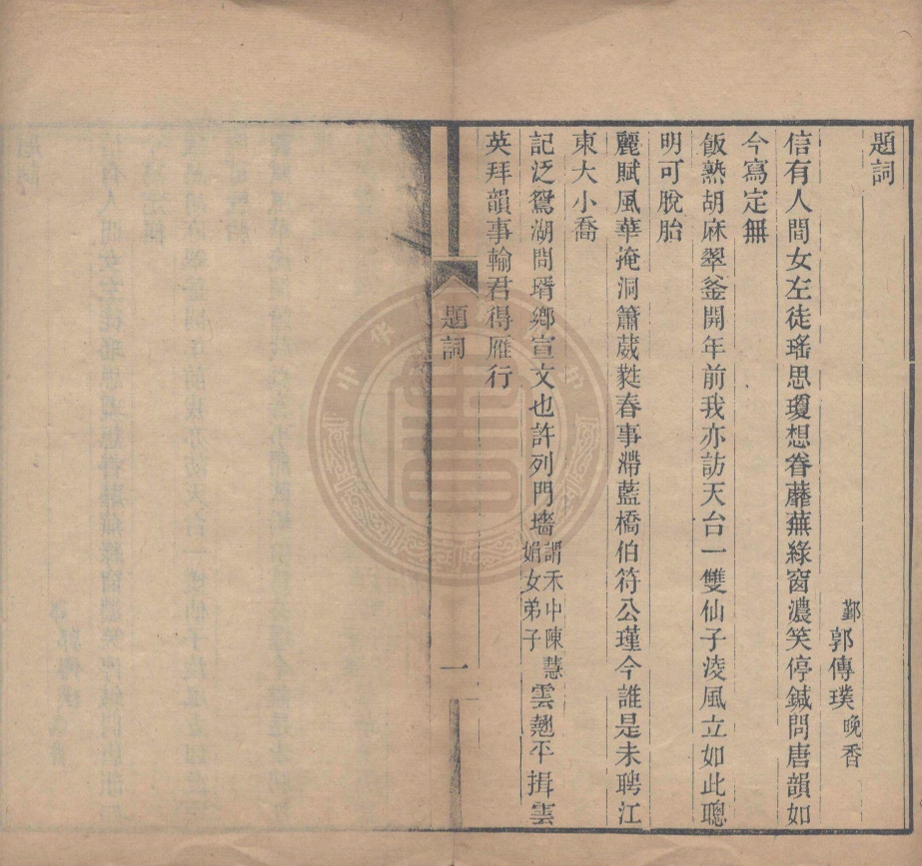 題詞
鄞郭傳璞晚香
信有人間女左徒瑤思瓊想眷蘼蕪綠窗濃笑停鍼問唐韻如
今寫定無
飯熟胡麻翠釜開年前我亦訪天台一雙仙子淩風立如此聰
明可脫胎
麗賦風華掩洞簫葳蕤春事滯藍橋伯符公瑾今誰是未聘江
東大小喬
記泛鴛湖問壻鄉宣文也許列門墻謂禾中陳慧娟女弟子雲翹平揖雲
英拜韻事輸君得雁行
題詞
一